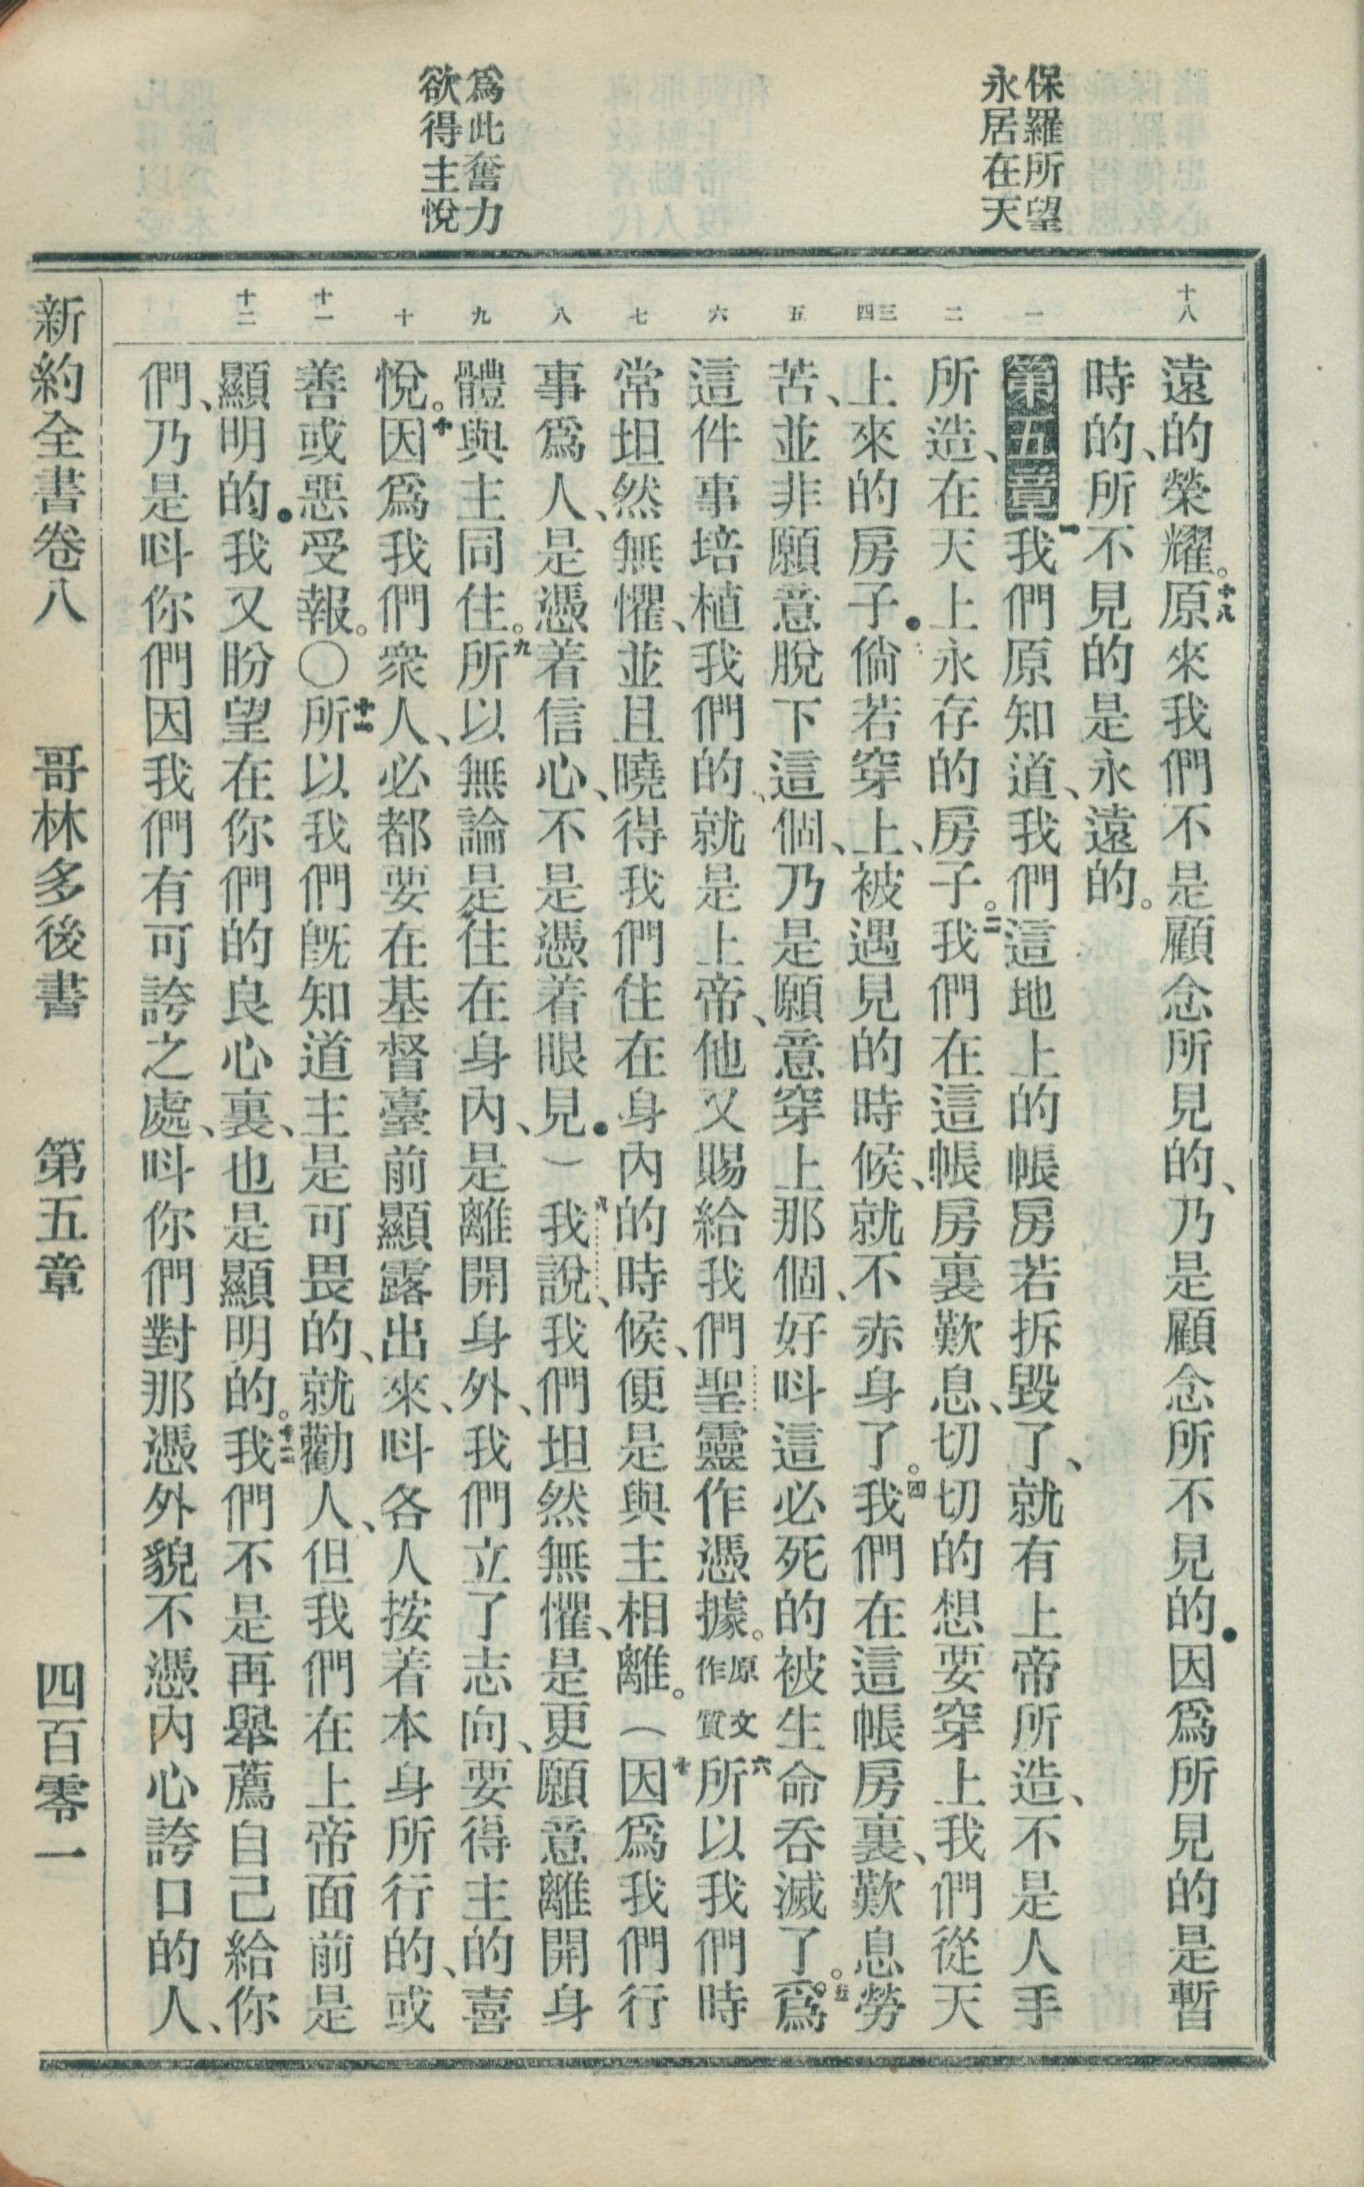 保羅所望
永居在天
爲此奮力
欲得主悅
十八
一
二
三
四
五
六
七
八
九
十
十一
十二
遠的榮耀。十八原來我們不是顧念所見的、乃是顧念所不見的•因爲所見的是暫
時的、所不見的是永遠的。
第五章一我們原知道、我們這地上的帳房若拆毀了、就有上帝所造、不是人手
所造、在天上永存的房子。二我們在這帳房裏歎息、切切的想要穿上我們從天
上來的房子•三倘若穿上、被遇見的時候、就不赤身了。四我們在這帳房裏、歎息勞
苦、並非願意脫下這個、乃是願意穿上那個、好呌這必死的被生命吞滅了。五爲
這件事培植我們的、就是上帝、他又賜給我們聖靈作憑據。原文作質六所以我們時
常坦然無懼、並且曉得我們住在身內的時候、便是與主相離。（七因爲我們行
事爲人、是憑着信心、不是憑着眼見•）八我說、我們坦然無懼、是更願意離開身
體與主同住。九所以無論是住在身內、是離開身外、我們立了志向、要得主的喜
悅。十因爲我們衆人、必都要在基督臺前顯露出來、呌各人按着本身所行的、或
善或惡受報。〇十一所以我們旣知道主是可畏的、就勸人、但我們在上帝面前是
顯明的•我又盼望在你們的良心裏、也是顯明的。十二我們不是再舉薦自己給你
們、乃是呌你們因我們有可誇之處、呌你們對那憑外貌不憑內心誇口的人、
新約全書卷八 哥林多後書 第五章 四百零一